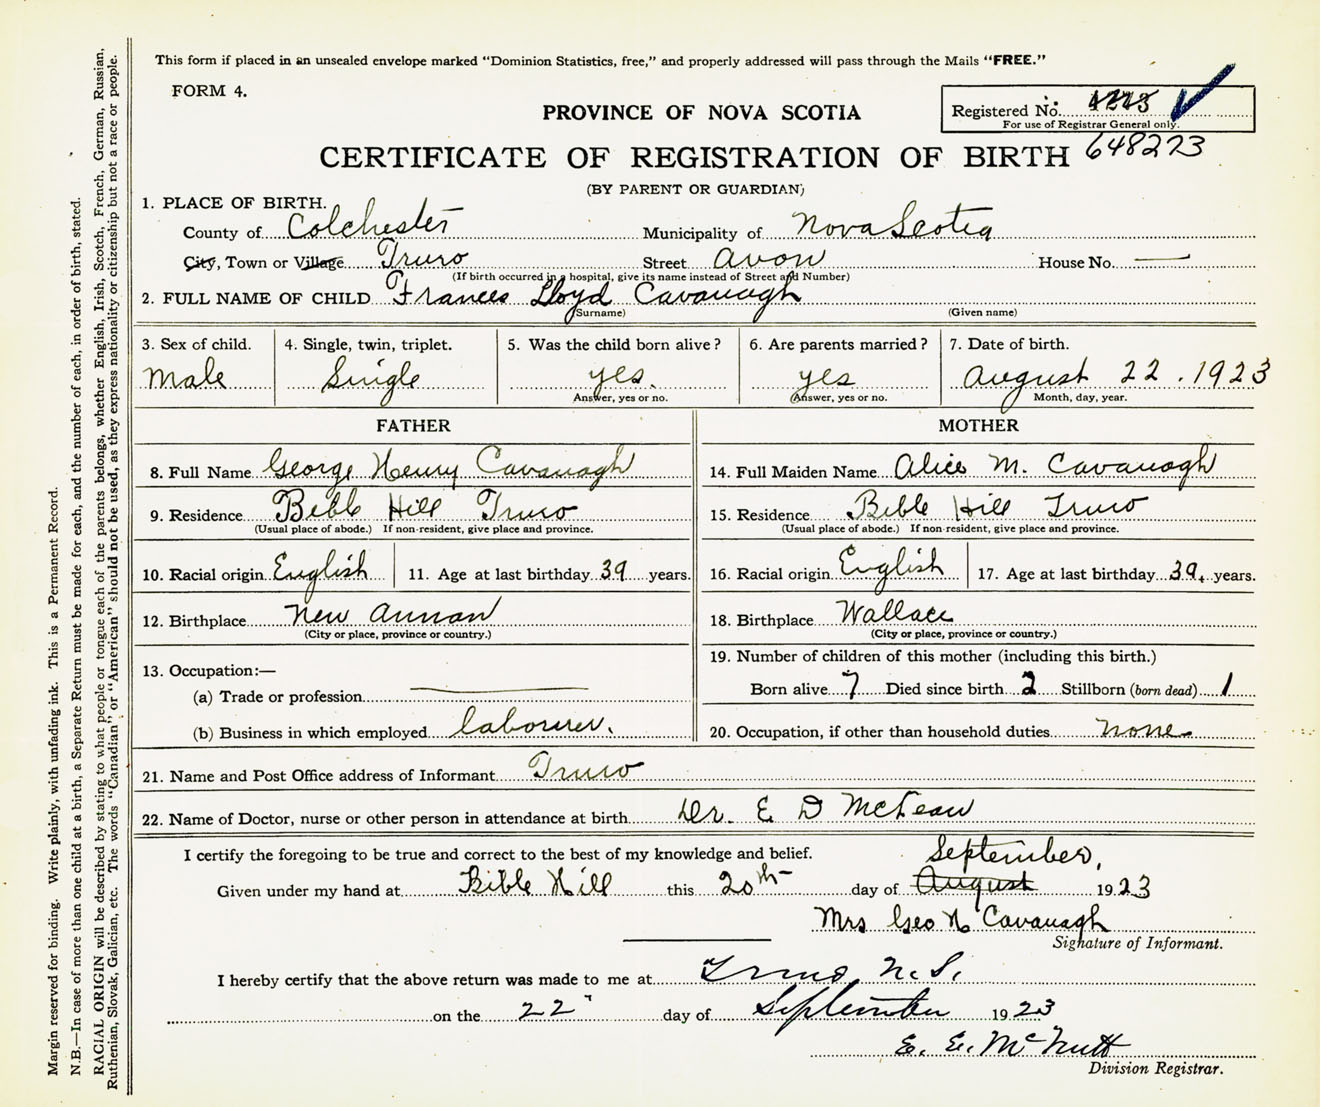 This form if placed in an unsealed envelope marked "Dominion Statistics, free," and properly addressed will pass through the Mails "FREE."
FORM 4.
PROVINCE OF NOVA SCOTIA
Registered No.
For use of Registrar General only.
648273
CERTIFICATE OF REGISTRATION OF BIRTH
(BY PARENT OR GUARDIAN)
1. PLACE OF BIRTH.
County of Colchester Municipality of Nova Scotia
City, Town or Village Truro Street Avon House No. —
(If birth occurred in a hospital, give its name instead of Street and Number)
2. FULL NAME OF CHILD Frances Lloyd Cavanagh
(Surname) (Given name)
3. Sex of child. 4. Single, twin, triplet. 5. Was the child born alive? 6. Are parents married? 7. Date of birth.
Male Single yes. yes August 22. 1923
Answer, yes or no. (Answer, yes or no. Month, day, year.
FATHER MOTHER
8. Full Name George Henry Cavanagh 14. Full Maiden Name Alice M. Cavanagh
9. Residence Bible Hill Truro 15. Residence Bible Hill Truro
(Usual place of abode.) If non-resident, give place and province. (Usual place of abode.) If non-resident, give place and province.
10. Racial origin English 11. Age at last birthday 39 years. 16. Racial origin English 17. Age at last birthday 39. years.
12. Birthplace New Annan 18. Birthplace Wallace
(City or place, province or country.) (City or place, province or country.)
13. Occupation:— 19. Number of children of this mother (including this birth.)
(a) Trade or profession — Born alive 7 Died since birth 2 Stillborn (born dead) 1
(b) Business in which employed labourer. 20. Occupation, if other than household duties none
21. Name and Post Office address of Informant Truro
22. Name of Doctor, nurse or other person in attendance at birth Dr. E D McLean
I certify the foregoing to be true and correct to the best of my knowledge and belief. September,
Given under my hand at Bible Hill this 20th day of August 1923
Mrs Geo H Cavanagh
Signature of Informant.
I hereby certify that the above return was made to me at Truro N.S.
on the 22 day of September 1923
E. E. McNutt
Division Registrar.
Margin reserved for binding. Write plainly, with unfading ink. This is a Permanent Record.
N.B.—In case of more than one child at a birth, a Separate Return must be made for each, and the number of each, in order of birth, stated.
RACIAL ORIGIN will be described by stating to what people or tongue each of the parents belongs, whether English, Irish, Scotch, French, German, Russian,
Ruthenian, Slovak, Galician, etc. The words "Canadian" or "American" should not be used, as they express nationality or citizenship but not a race or people.